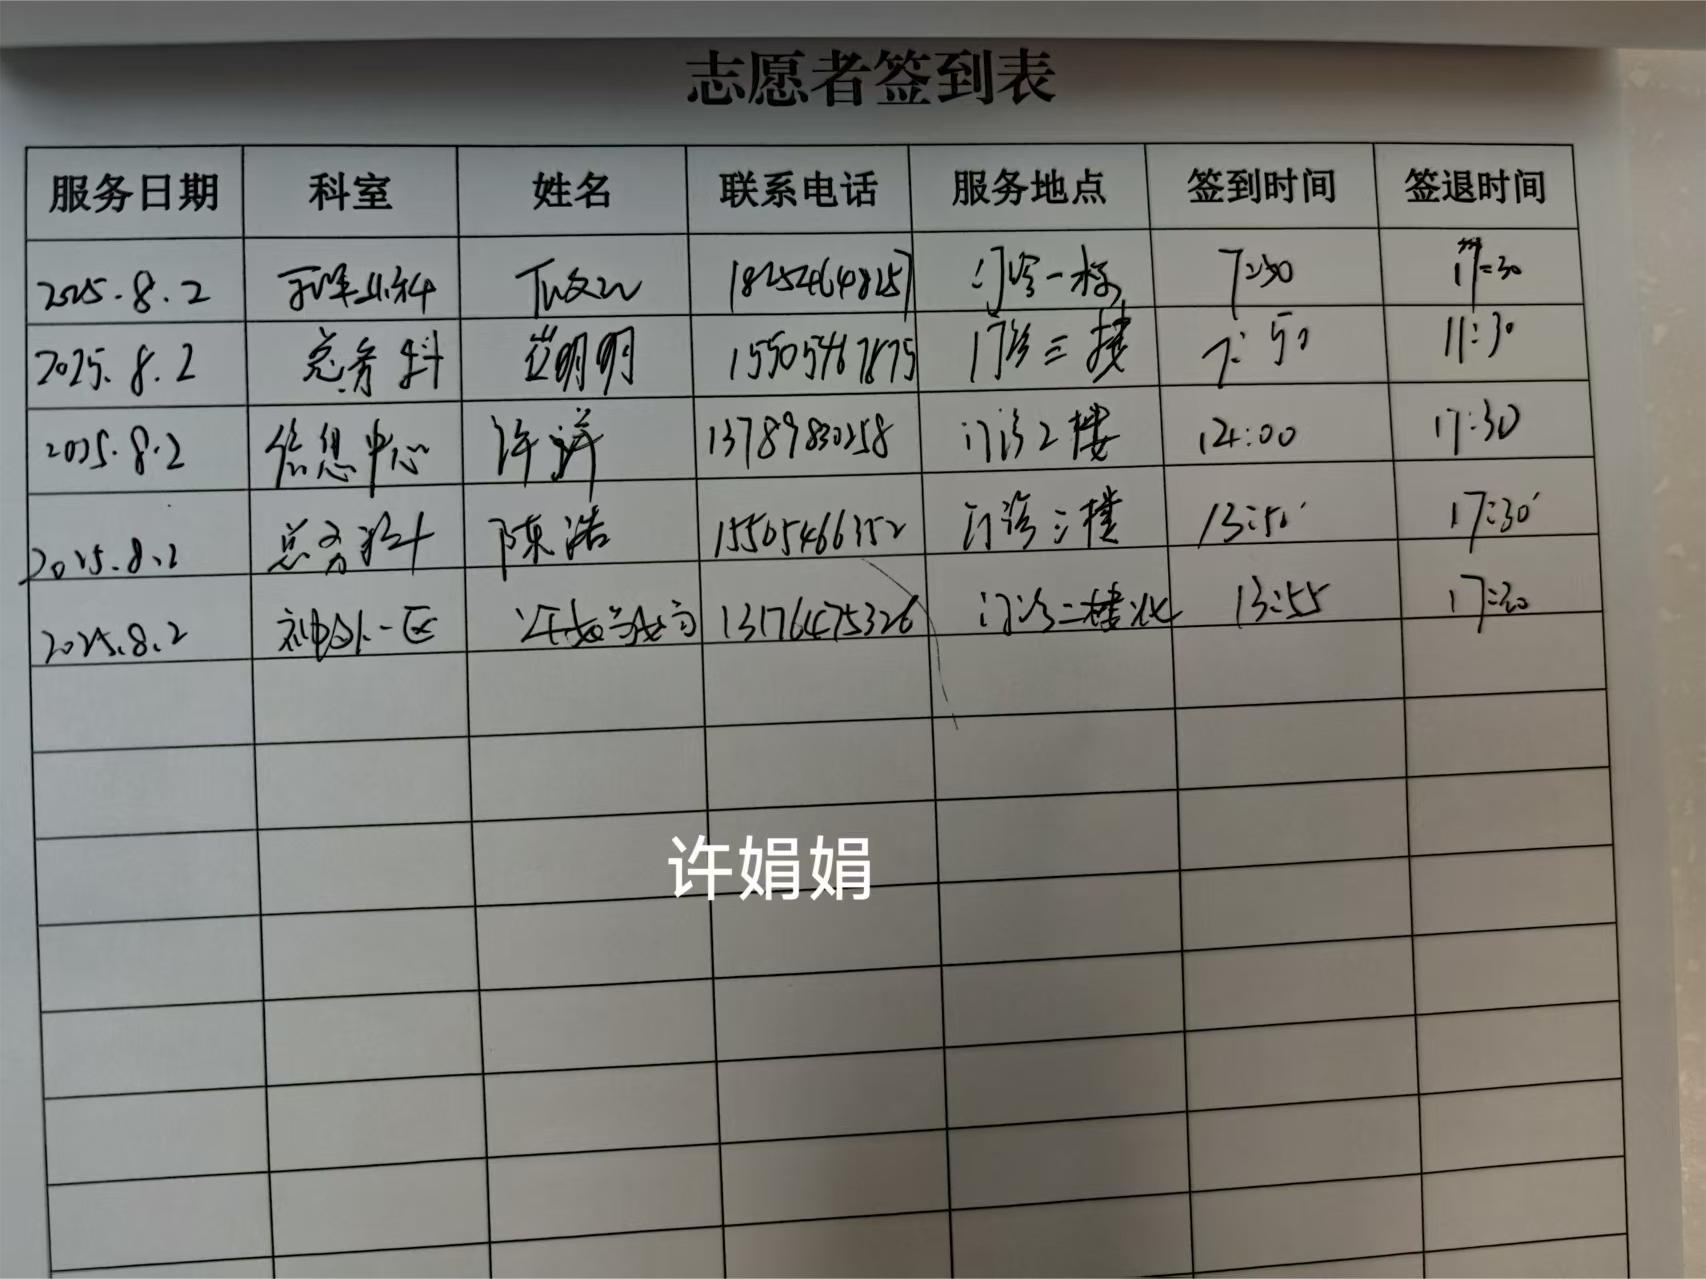 志愿者签到表
服务日期 科室 姓名 联系电话 服务地点 签到时间 签退时间
2025.8.2 18254648257 门诊一楼 7:50 17:30
2025.8.2 总务科 明明 15505467875 门诊三楼 7:50 11:30
2025.8.2 信息中心 许洋 13789830258 门诊2楼 14:00 17:30
2025.8.2 总务科 陈浩 15505466352 门诊三楼 13:50 17:30
2025.8.2 神外一区 许娟娟 13176475326 门诊二楼北 13:55 17:30
许娟娟